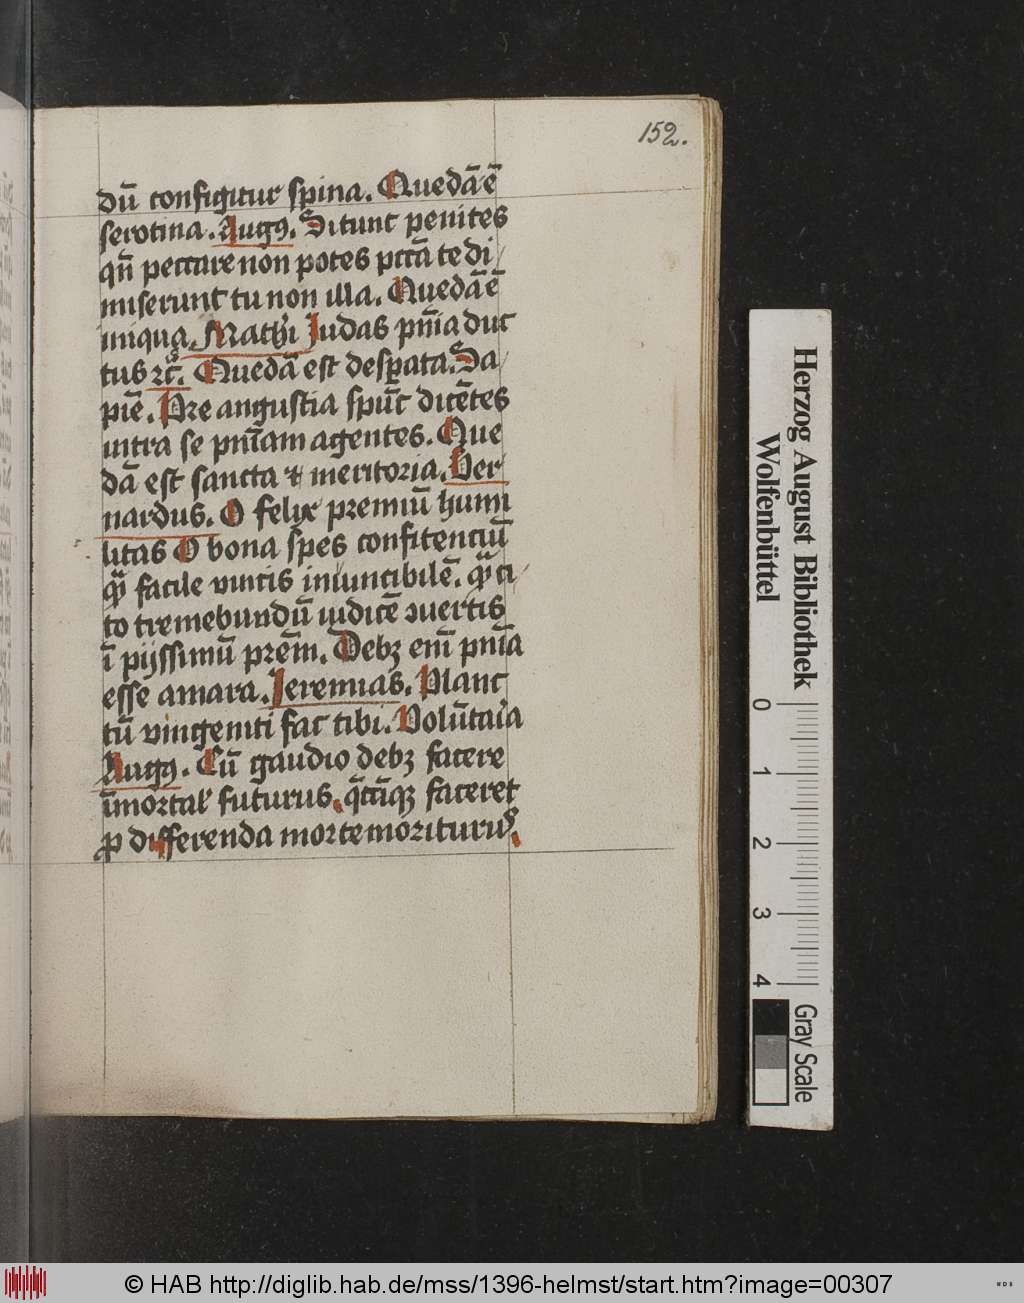 152.
dū configitur spina. Quedā ē
serotina. Augꝰ. Si tunc penites
qn̄ peccare non potes pctā te di
miserunt tu non illa. Quedā ē
iniqua. Mathi Judas pn̄ia duc
tus ⁊c̄. Quedā est desꝑata. Sa
piē. Pre angustia spūc dicētes
intra se pn̄iam agentes. Que
dā est sancta ⁊ meritoria. Ber
nardus. O felix premiū humi
litas O bona spes confitenciū
qm̄ facile vincis inuincibilē. qm̄ ci
to tremebundū iudicē ꝯuertis
ī pijssimū prēm. Debꝫ em̄ pn̄ia
esse amara. Jeremias. Planc
tū vnigeniti fac tibi. Volūtaīa
Augꝰ. Cū gaudio debꝫ facere
īmortal' futurus. q̄ctāqꝫ faceret
ꝓ differenda morte moriturꝰ.
Herzog August Bibliothek
Wolfenbüttel
0 1 2 3 4
Gray Scale
© HAB http://diglib.hab.de/mss/1396-helmst/start.htm?image=00307